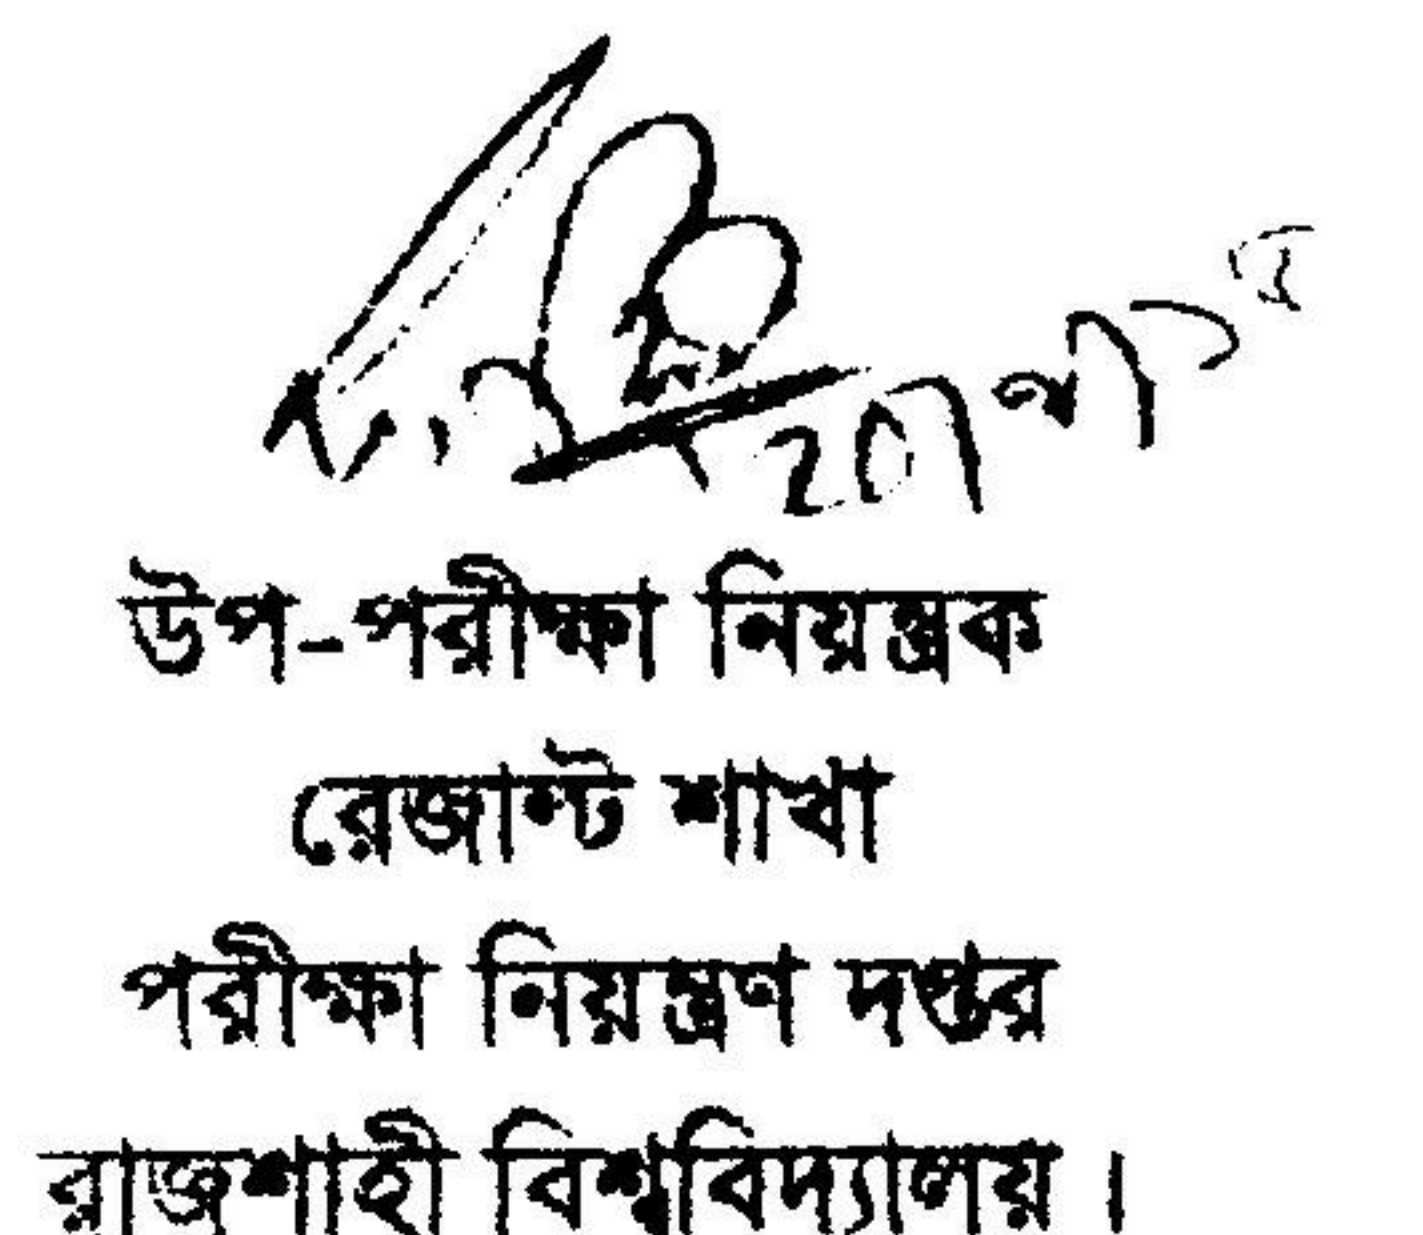 উপ-পরীক্ষা নিয়ন্ত্রক
রেজাল্ট শাখা
পরীক্ষা নিয়ন্ত্রণ দপ্তর
রাজশাহী বিশ্ববিদ্যালয় ।